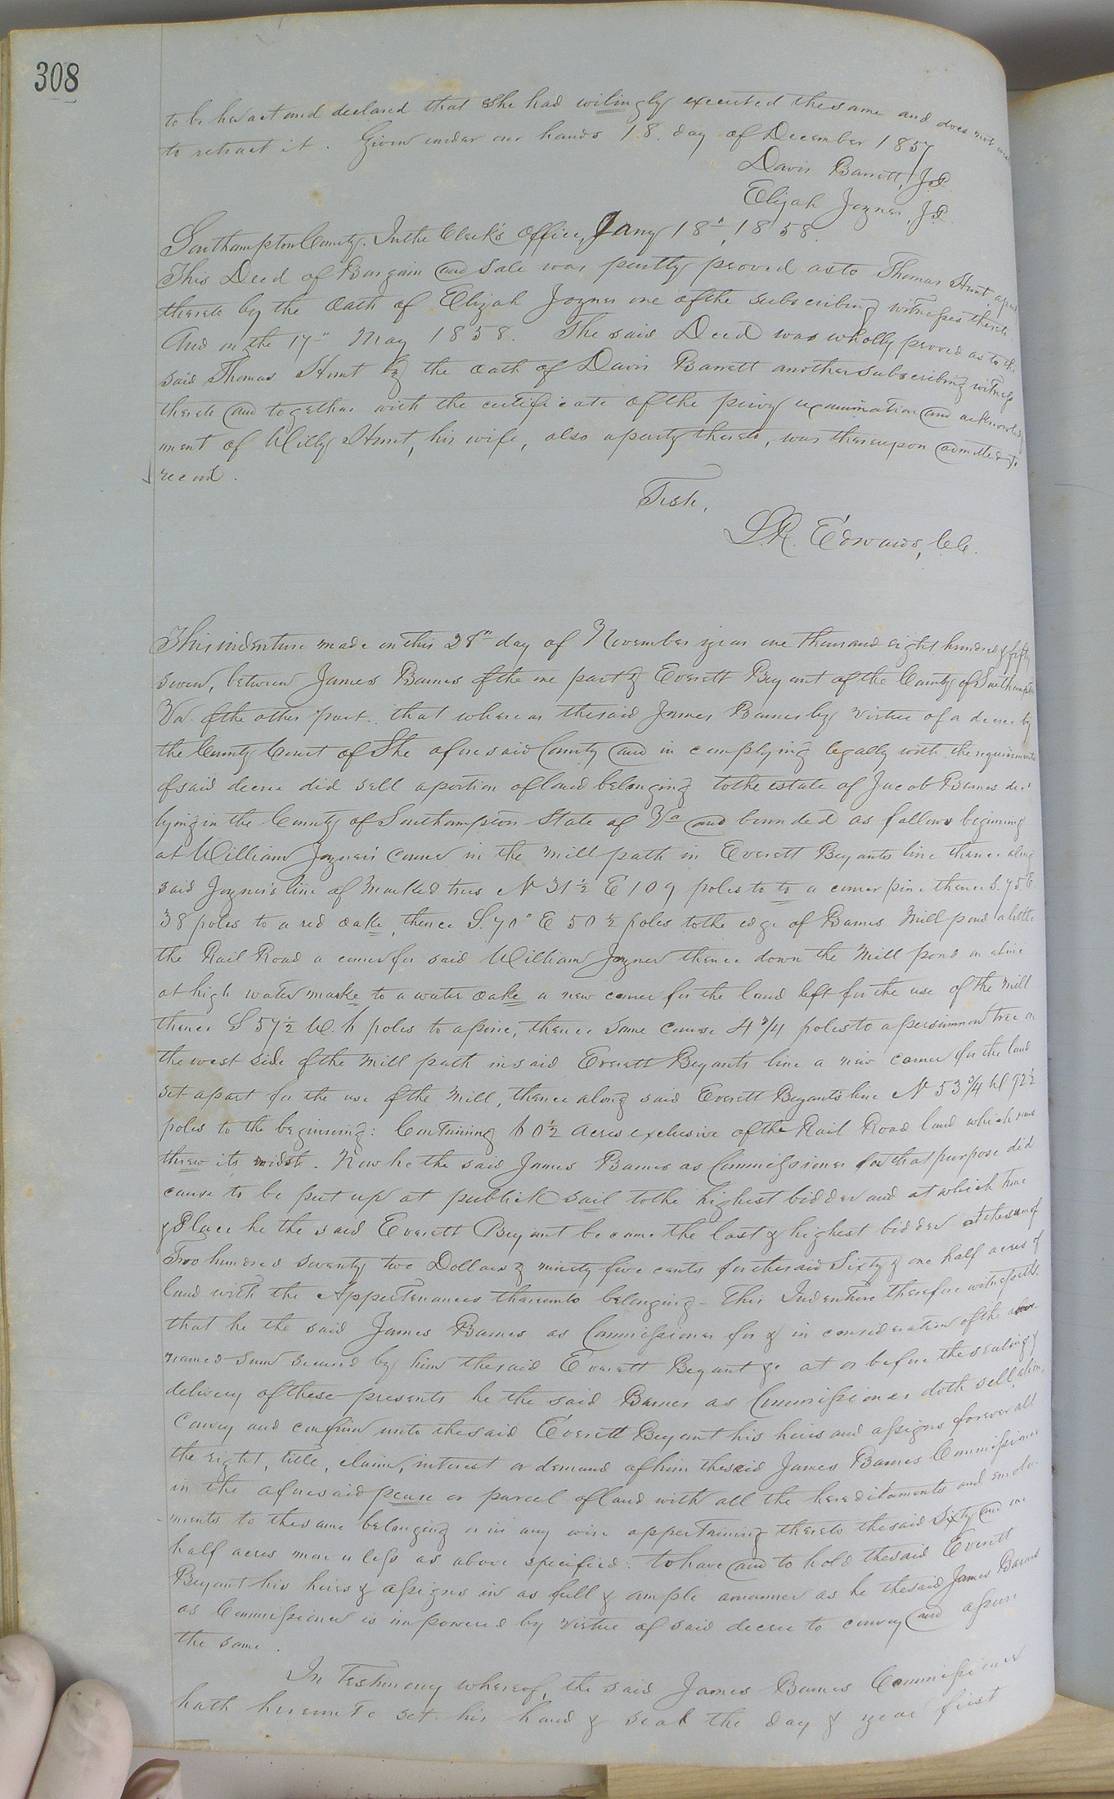 308
to be her act and declared that she had willingly executed the same and does not
to retract it. Given under our hands 18 day of December 1857
Davis Barrett, J.P.
Elijah Joyner, J.P.
Southampton County. In the Clerk's Office, Jany 18th, 1858.
This Deed of Bargain and Sale was partly proved as to Thomas Hunt a party
thereto by the oath of Elijah Joyner one of the subscribing witnesses thereto
And on the 17th May 1858. The said Deed was wholly proved as to the
said Thomas Hunt by the oath of Davis Barrett another subscribing witness
thereto and together with the certificate of the privy examination and acknowledg
ment of Milly Hunt, his wife, also a party thereto, was thereupon admitted to
record.
Teste,
L.R. Edwards, C.C.
This indenture made on this 28th day of November year one thousand eight hundred & fifty
seven, between James Barnes of the one part & Everett Bryant of the County of Southampton
Va. of the other part. that where as the said James Barnes by virtue of a decree by
the County Court of the aforesaid County and in complying legally with the requirements
of said decree did sell a portion of land belonging to the estate of Jacob Barnes decd
lying in the County of Southampton State of Va and bounded as follows begining
at William Joyner's corner in the mill path in Everett Bryants line thence along
said Joyner's line of marked trees N 31½ E 109 poles to to a corner pine thence S. 75 E
38 poles to a red oake, thence S. 70° E 50½ poles to the edge of Barnes Mill pond a little
the Rail Road a corner for said William Joyner thence down the Mill pond on a line
at high water marke to a water oake a new corner for the land left for the use of the mill
thence S 57½ W. 6 poles to a pine, thence same course 4 3/4 poles to a persimmon tree on
the west side of the mill path in said Everett Bryants line a new corner for the land
set apart for the use of the Mill, thence along said Everett Bryants line N 53 3/4 W 92½
poles to the beginning: Containing 60½ acres exclusive of the Rail Road land which runs
threw its midst. Now he the said James Barnes as Commissioner for that purpose did
cause to be put up at publick sail to the highest bidder and at which time
& Place he the said Everett Bryant became the last & highest bidder at the sum of
Two hundred seventy two Dollars & ninety five cents for the said Sixty & one half acres of
land with the Appertenances thereunto belonging - This Indenture therefore witnesseth
that he the said James Barnes as Commissioner for & in consideration of the above
named sum secured by him the said Everett Bryant &c at or before the sealing &
delivery of these presents he the said Barnes as Commissioner doth sell
Convey and confirm unto the said Everett Bryant his heirs and assigns forever all
the right, title, claim, interest or demand of him the said James Barnes Commissioner
in the aforesaid peace or parcel of land with all the hereditaments and emolu-
ments to the same belonging or in any wise appertaining thereto the said Sixty and one
half acres more or less as above specified: to have and to hold the said Everett
Bryant his heirs & assigns in as full & ample a manner as he the said James Barnes
as Commissioner is impowered by virtue of said decree to convey and assure
the same.
In Testimony whereof, the said James Barnes Commissioner
hath hereunto set his hand & seal the day & year first